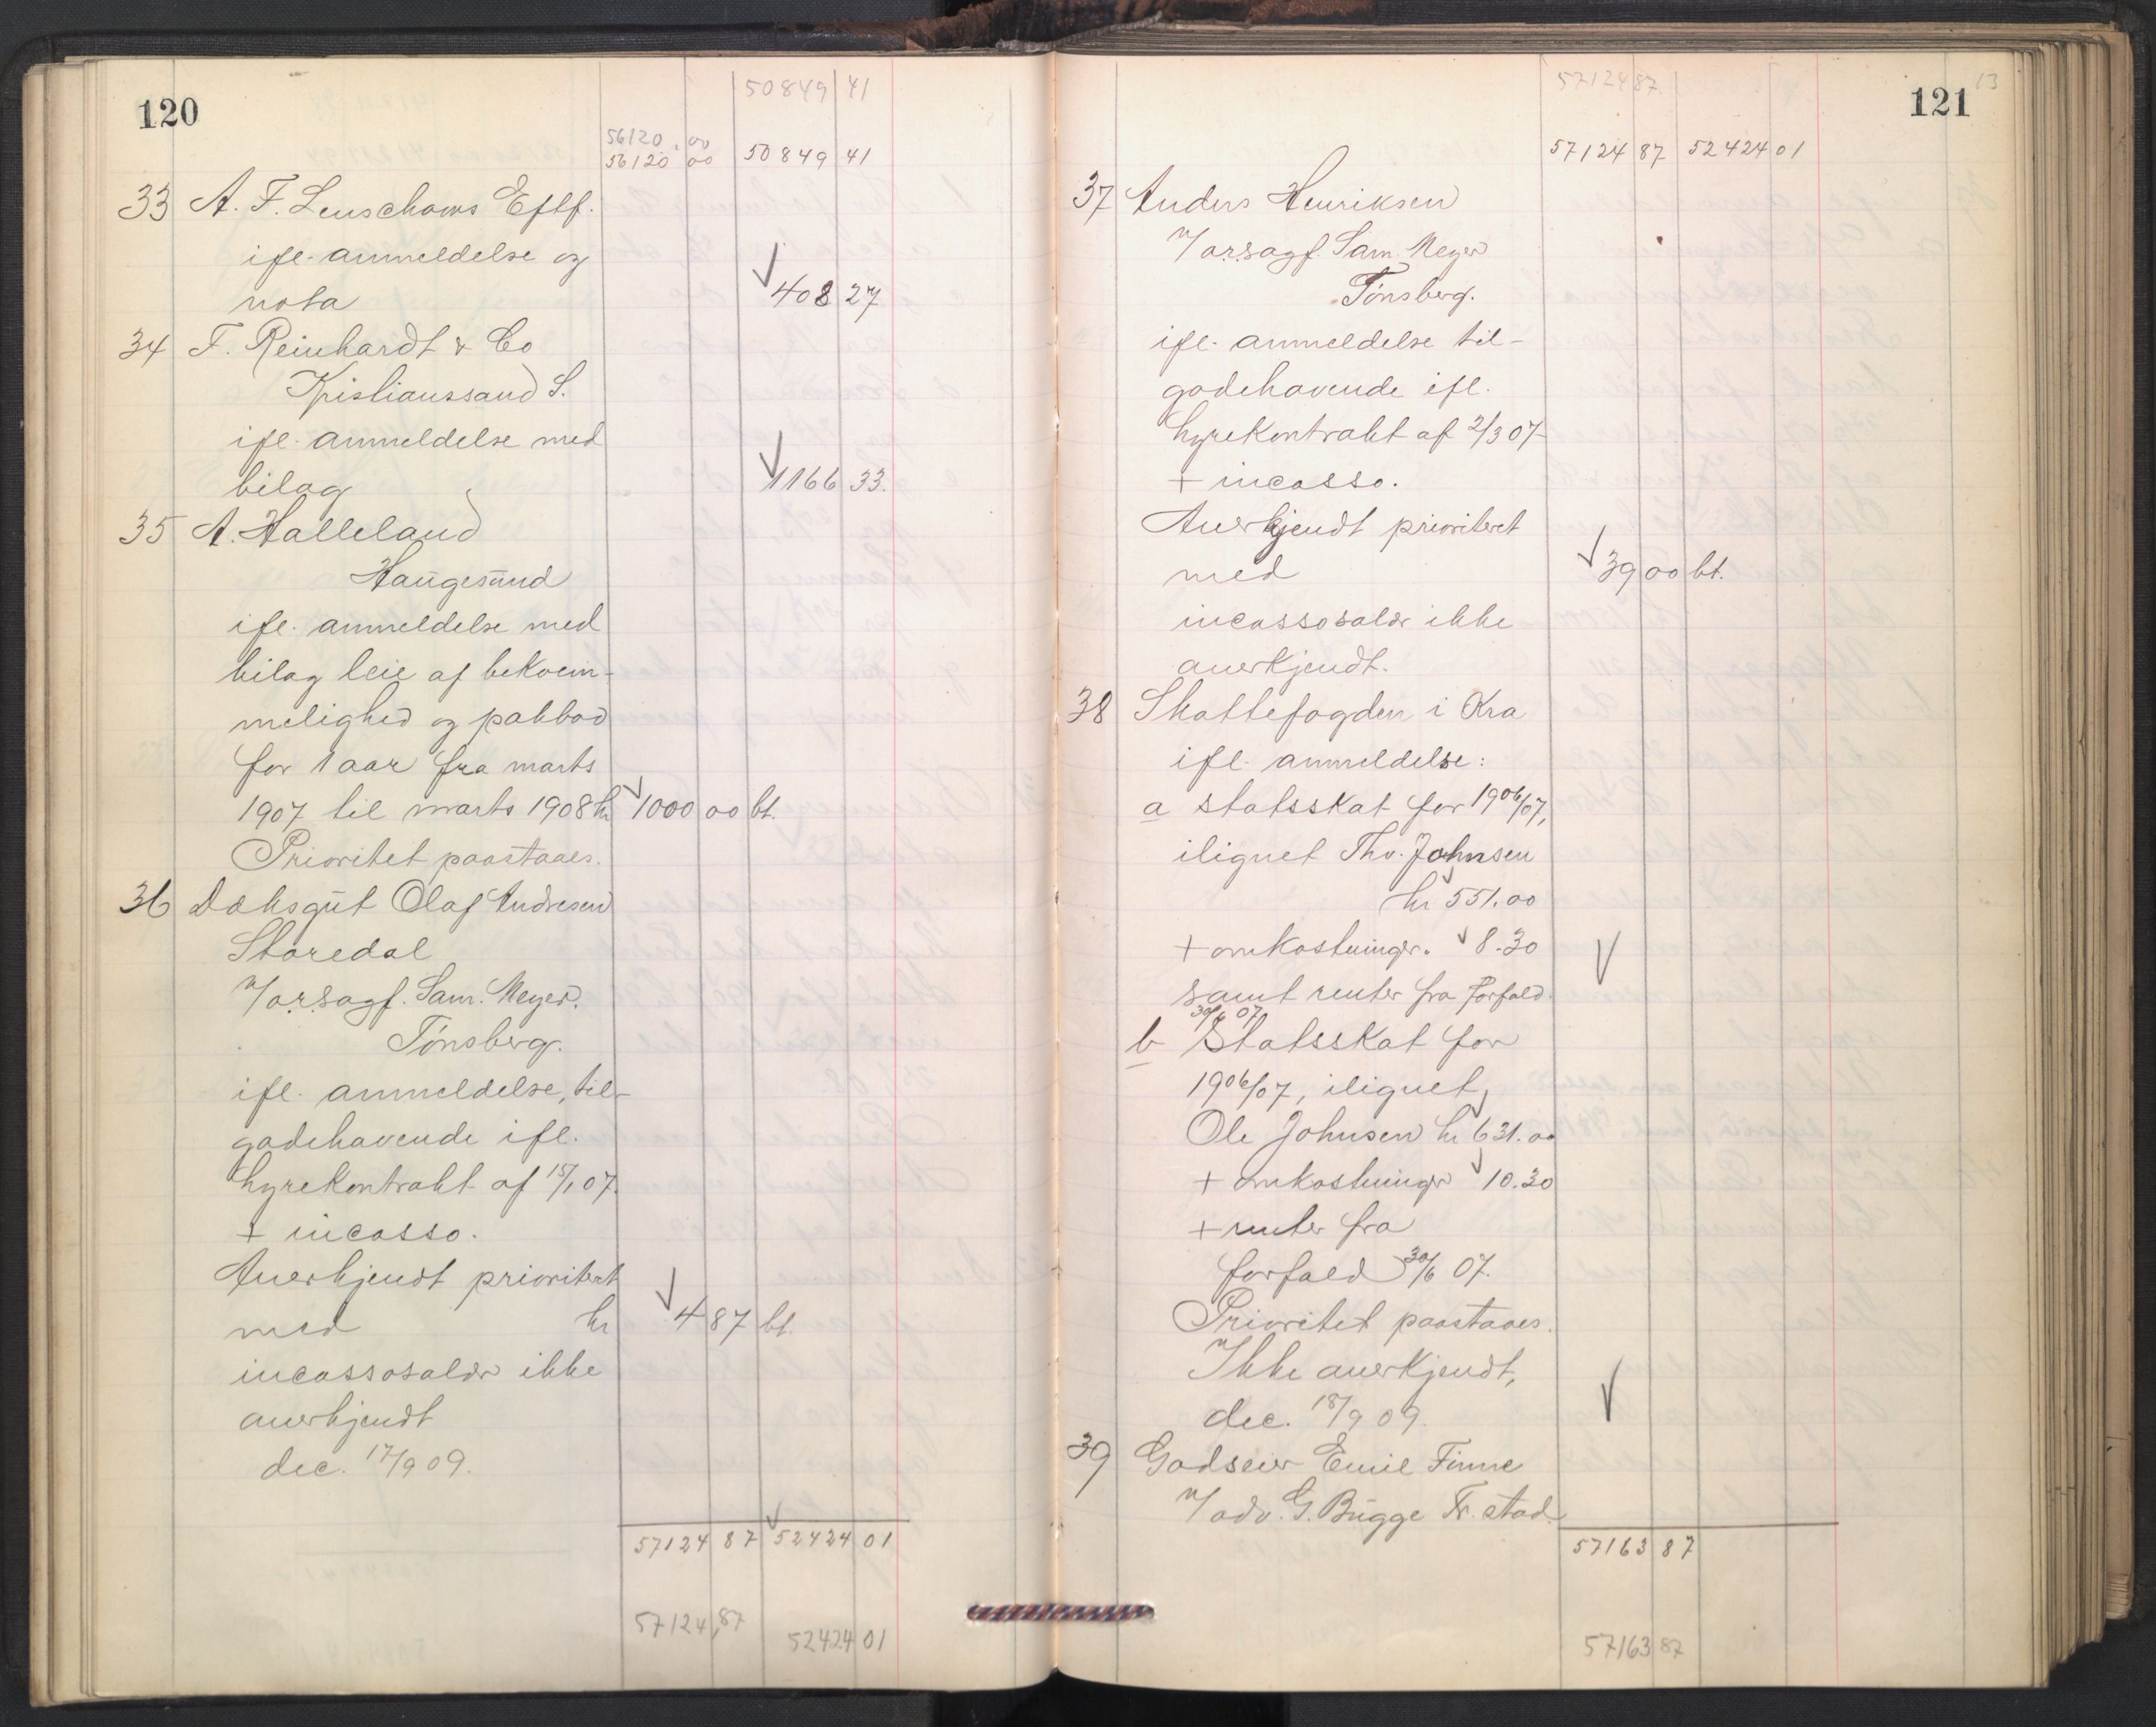 120
50849 41
56120.00
56120 00 50849 41
33 A. F. Leuschows Eftf.
ifl. anmeldelse og
nota 408 27
34 F. Reinhardt & Co
Kristianssand S.
ifl. anmeldelse med
bilag 1166 33.
35 A. Halleland
Haugesund
ifl. anmeldelse med
bilag leie af bekvem-
melighed og pakbod
for 1 aar fra marts
1907 til marts 1908 kr 1000 00 bt.
Prioritet paastaaes.
36 Dæksgut Olaf Andresen
Skaredal
v/ o.r.sagf. Sam. Meyer.
Tönsberg.
ifl. anmeldelse, til-
godehavende ifl.
hyrekontrakt af 15/1 07.
+ incasso.
Anerkjendt prioritert
med kr 4 87 bt.
incassosalær ikke
anerkjendt
dec. 17/9 09.
57124 87 52424 01
57124,87
52424 01
121
13
57124 87
57124 87 52424 01
37 Anders Henriksen
v/ o.r.sagf. Sam. Meyer
Tönsberg.
ifl. anmeldelse til-
godehavende ifl.
hyrekontrakt af 2/3 07
+ incasso.
Anerkjendt prioritert
med 39 00 bt.
incassosalær ikke
anerkjendt.
38 Skattefogden i Kra
ifl. anmeldelse:
a statsskat for 1906/07,
ilignet Thv. Johnsen
kr 551.00
+ omkostninger. 8.30
samt renter fra forfald
30/6 07
b Statsskat for
1906/07, ilignet
Ole Johnsen kr 631.00
+ omkostninger 10.30
+ renter fra
forfald 30/6 07.
Prioritet paastaaes.
Ikke anerkjendt,
dec. 18/9 09.
39 Godseier Emil Finne
v/ adv. G. Bugge Fr.stad.
57163 87
57163 87